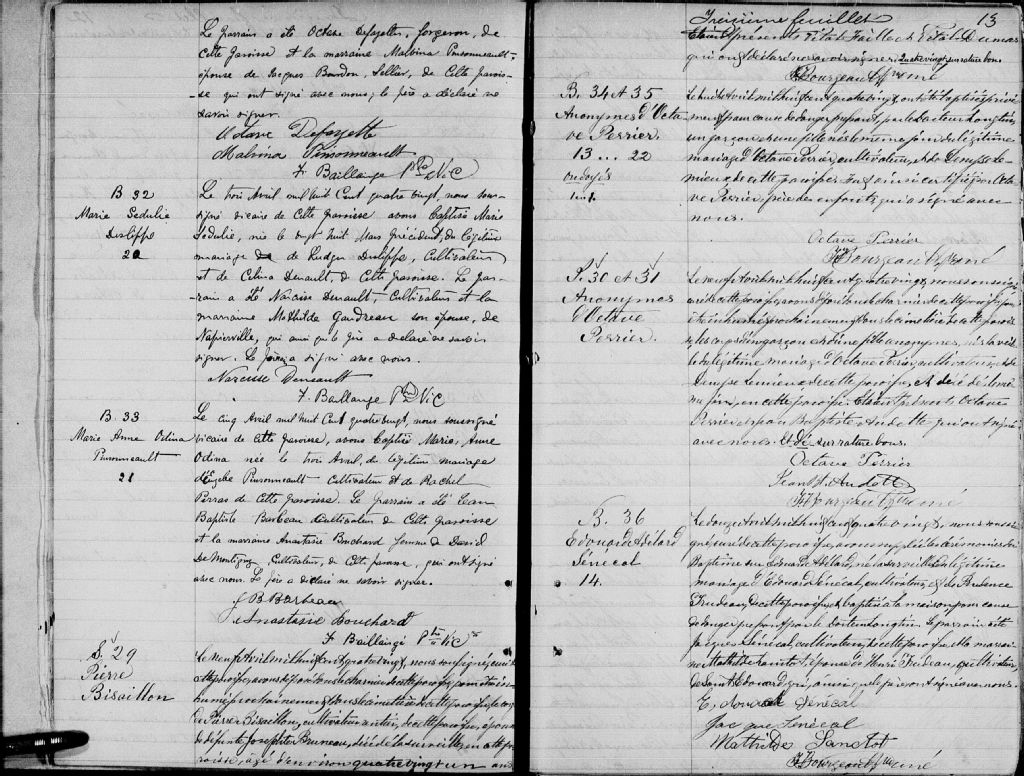 Le parrain a été Octave Defayette, forgeron, de
cette paroisse et la marraine Malvina Pinsonneault
épouse de Jacques Bourdon, Sellier, de cette parois-
se qui ont signé avec nous; le père a déclaré ne
savoir signer.
Octave Defayette
Malvina Pinsonneault
F. Baillargé Ptre Vic
B 32
Marie Sedulie
Deslippe
20
Le trois Avril mil huit cent quatre vingt, nous sous-
signé vicaire de cette paroisse avons baptisé Marie
Sedulie, née le vingt huit Mars précédent, du légitime
mariage de Ludger Deslippe, Cultivateur
et de Celina Denault, de cette paroisse. Le par-
rain a été Narcisse Denault, Cultivateur et la
marraine Mathilde Gaudreau son épouse, de
Napierville, qui ainsi que le père a déclaré ne savoir
signer. Le parrain a signé avec nous.
Narcisse Deneault
F. Baillargé Ptre Vic
B 33
Marie Anne Odina
Pinsonneault
21
Le cinq Avril mil huit cent quatre vingt, nous soussigné
vicaire de cette paroisse, avons baptisé Marie, Anne
Odina née le trois Avril, du légitime mariage
d'Eusèbe Pinsonneault Cultivateur et de Rachel
Perras de cette paroisse. Le parrain a été Jean
Baptiste Barbeau Cultivateur de cette paroisse
et la marraine Anastasie Bouchard femme de David
De Montigny, Cultivateur, de cette paroisse, qui ont signé
avec nous. Le père a déclaré ne savoir signer.
J B Barbeau
Anastasie Bouchard
F. Baillargé Ptre Vic
S. 29
Pierre
Bisaillon
Le neuf Avril mil huit cent quatre vingt, nous soussigné, curé de
cette paroisse, avons déposé dans le charnier de cette paroisse, pour être in-
humé prochainement dans le cimetière de cette paroisse, le corps
de Pierre Bisaillon, cultivateur, de cette paroisse, époux
de défunte Josephte Bruneau, décédé la surveille en cette pa-
roisse, âgé d'environ quatre vingt un ans
Treizième feuillet 13
présents Vital Faille et Vital Dumas
qui ont déclaré ne savoir signer.
F. Bourgeault Ptre curé
B. 34 et 35
Anonymes d'Octa-
ve Perrier.
13 ... 22
ondoyés
Le huit Avril mil huit cent quatre vingt, ont été baptisés privé-
ment pour cause de danger pressant, par le docteur Longtin,
un garçon et une fille nés le même jour du légitime
mariage d'Octave Perrier, cultivateur, et de Denyse Le-
mieux de cette paroisse. Octa-
ve Perrier, père des enfants, qui a signé avec
nous.
Octave Perrier
F. Bourgeault Ptre curé
S. 30 et 31
Anonymes
d'Octave
Perrier.
Le neuf Avril mil huit cent quatre vingt, nous soussigné,
curé de cette paroisse, avons déposé dans le charnier de cette paroisse, pour
être inhumés prochainement dans le cimetière de cette parois-
se, les corps d'un garçon et d'une fille anonymes, nés la veille
du légitime mariage d'Octave Perrier, cultivateur, et de
Denyse Lemieux de cette paroisse, et décédés le mê-
me jour, en cette paroisse. Etaient présents, Octave
Perrier et Jean Baptiste Audette qui ont signé
avec nous.
Octave Perrier
Jean Bt Audett
F. Bourgeault Ptre curé
B. 36
Edouard Adélard
Sénécal
14.
Le douze Avril mil huit cent quatre vingt, nous sous-
signé curé de cette paroisse, avons suppléé les cérémonies du
Baptême à Edouard Adélard, né la surveille du légitime
mariage d'Edouard Sénécal, cultivateur, et de Prudence
Trudeau, de cette paroisse, et baptisé à la maison pour cause
de danger pressant par le docteur Longtin. Le parrain a été
Jacques Sénécal, cultivateur, de cette paroisse, et la marrai-
ne Mathilde Lanctot épouse de Henri Trudeau, cultivateur,
de Saint Edouard, qui, ainsi que le père ont signé avec nous.
Edouard Sénécal
Jacques Sénécal
Mathilde Lanctot
F. Bourgeault Ptre curé